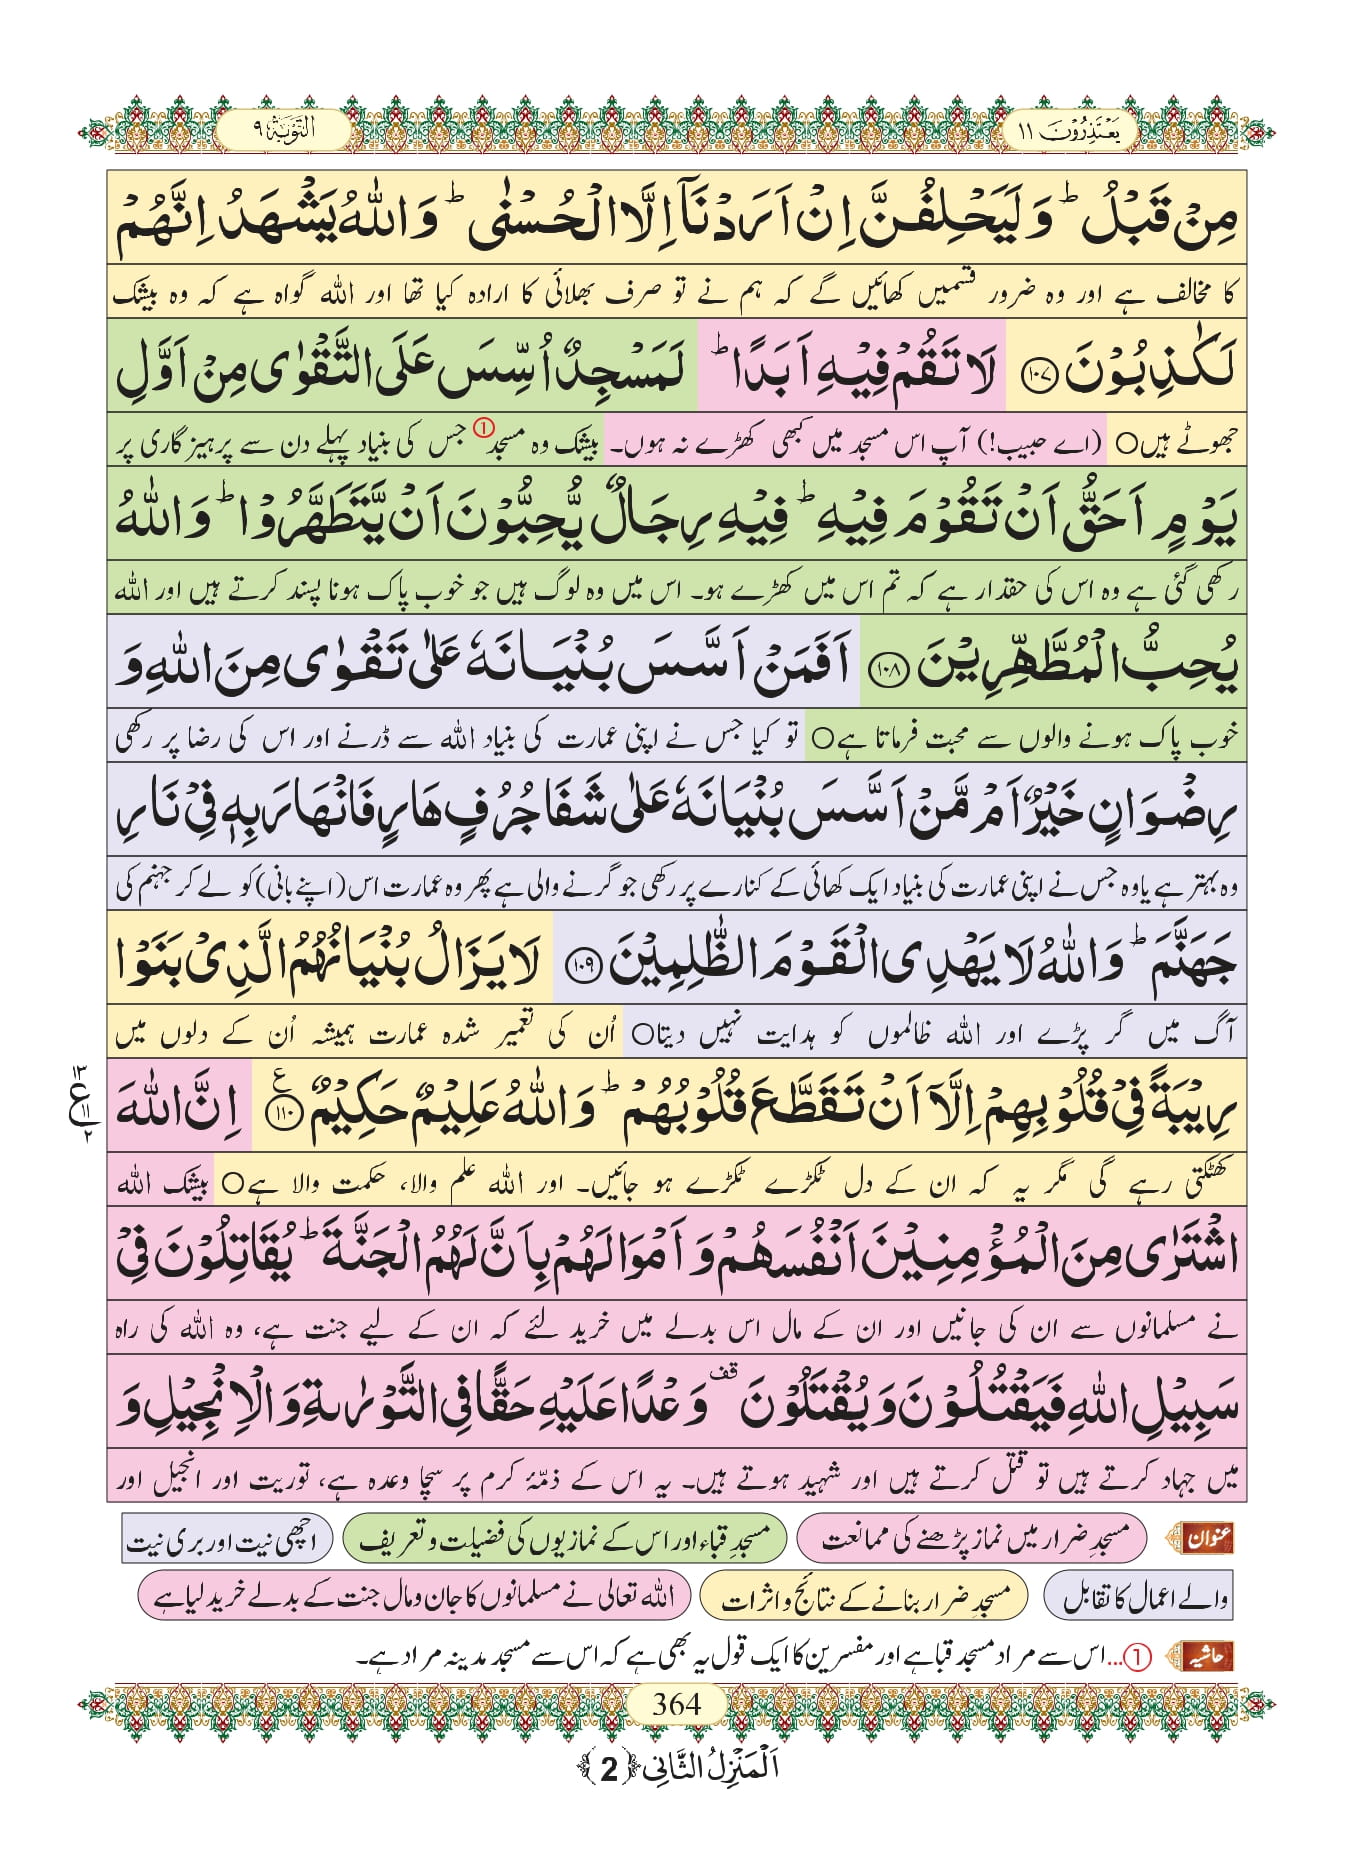 یَعْتَذِرُوْنَ ۱۱
التَّوْبَۃ ۹
مِنْ قَبْلُ ؕ وَ لَیَحْلِفُنَّ اِنْ اَرَدْنَاۤ اِلَّا الْحُسْنٰى ؕ وَ اللّٰهُ یَشْهَدُ اِنَّهُمْ
کا مخالف ہے اور وہ ضرور قسمیں کھائیں گے کہ ہم نے تو صرف بھلائی کا ارادہ کیا تھا اور اللہ گواہ ہے کہ وہ بیشک
لَكٰذِبُوْنَ ﴿۱۰۷﴾ لَا تَقُمْ فِیْهِ اَبَدًا ؕ لَمَسْجِدٌ اُسِّسَ عَلَى التَّقْوٰى مِنْ اَوَّلِ
جھوٹے ہیں○ (اے حبیب!) آپ اس مسجد میں کبھی کھڑے نہ ہوں۔ بیشک وہ مسجد① جس کی بنیاد پہلے دن سے پرہیز گاری پر
یَوْمٍ اَحَقُّ اَنْ تَقُوْمَ فِیْهِ ؕ فِیْهِ رِجَالٌ یُّحِبُّوْنَ اَنْ یَّتَطَهَّرُوْا ؕ وَ اللّٰهُ
رکھی گئی ہے وہ اس کی حقدار ہے کہ تم اس میں کھڑے ہو۔ اس میں وہ لوگ ہیں جو خوب پاک ہونا پسند کرتے ہیں اور اللہ
یُحِبُّ الْمُطَّهِّرِیْنَ ﴿۱۰۸﴾ اَفَمَنْ اَسَّسَ بُنْیَانَهٗ عَلٰى تَقْوٰى مِنَ اللّٰهِ وَ
خوب پاک ہونے والوں سے محبت فرماتا ہے○ تو کیا جس نے اپنی عمارت کی بنیاد اللہ سے ڈرنے اور اس کی رضا پر رکھی
رِضْوَانٍ خَیْرٌ اَمْ مَّنْ اَسَّسَ بُنْیَانَهٗ عَلٰى شَفَا جُرُفٍ هَارٍ فَانْهَارَ بِهٖ فِیْ نَارِ
وہ بہتر ہے یا وہ جس نے اپنی عمارت کی بنیاد ایک کھائی کے کنارے پر رکھی جو گرنے والی ہے پھر وہ عمارت اس (اپنے بانی) کو لے کر جہنم کی
جَهَنَّمَ ؕ وَ اللّٰهُ لَا یَهْدِی الْقَوْمَ الظّٰلِمِیْنَ ﴿۱۰۹﴾ لَا یَزَالُ بُنْیَانُهُمُ الَّذِیْ بَنَوْا
آگ میں گر پڑے اور اللہ ظالموں کو ہدایت نہیں دیتا○ اُن کی تعمیر شدہ عمارت ہمیشہ اُن کے دلوں میں
رِیْبَةً فِیْ قُلُوْبِهِمْ اِلَّاۤ اَنْ تَقَطَّعَ قُلُوْبُهُمْ ؕ وَ اللّٰهُ عَلِیْمٌ حَكِیْمٌ ﴿۱۱۰﴾ ع اِنَّ اللّٰهَ
۱۳ ع ۱۱ ۲
کھٹکتی رہے گی مگر یہ کہ ان کے دل ٹکڑے ٹکڑے ہو جائیں۔ اور اللہ علم والا، حکمت والا ہے○ بیشک اللہ
اشْتَرٰى مِنَ الْمُؤْمِنِیْنَ اَنْفُسَهُمْ وَ اَمْوَالَهُمْ بِاَنَّ لَهُمُ الْجَنَّةَ ؕ یُقَاتِلُوْنَ فِیْ
نے مسلمانوں سے ان کی جانیں اور ان کے مال اس بدلے میں خرید لئے کہ ان کے لیے جنت ہے، وہ اللہ کی راہ
سَبِیْلِ اللّٰهِ فَیَقْتُلُوْنَ وَ یُقْتَلُوْنَ ۫ قف وَعْدًا عَلَیْهِ حَقًّا فِی التَّوْرٰىةِ وَ الْاِنْجِیْلِ وَ
میں جہاد کرتے ہیں تو قتل کرتے ہیں اور شہید ہوتے ہیں۔ یہ اس کے ذمّۂ کرم پر سچا وعدہ ہے، توریت اور انجیل اور
عنوان مسجدِ ضرار میں نماز پڑھنے کی ممانعت مسجدِ قباء اور اس کے نمازیوں کی فضیلت و تعریف اچھی نیت اور بری نیت
والے اعمال کا تقابل مسجدِ ضرار بنانے کے نتائج و اثرات اللہ تعالی نے مسلمانوں کا جان و مال جنت کے بدلے خرید لیا ہے
حاشیہ ①...اس سے مراد مسجد قبا ہے اور مفسرین کا ایک قول یہ بھی ہے کہ اس سے مسجد مدینہ مراد ہے۔
364
اَلْمَنْزِلُ الثَّانِی ﴿2﴾